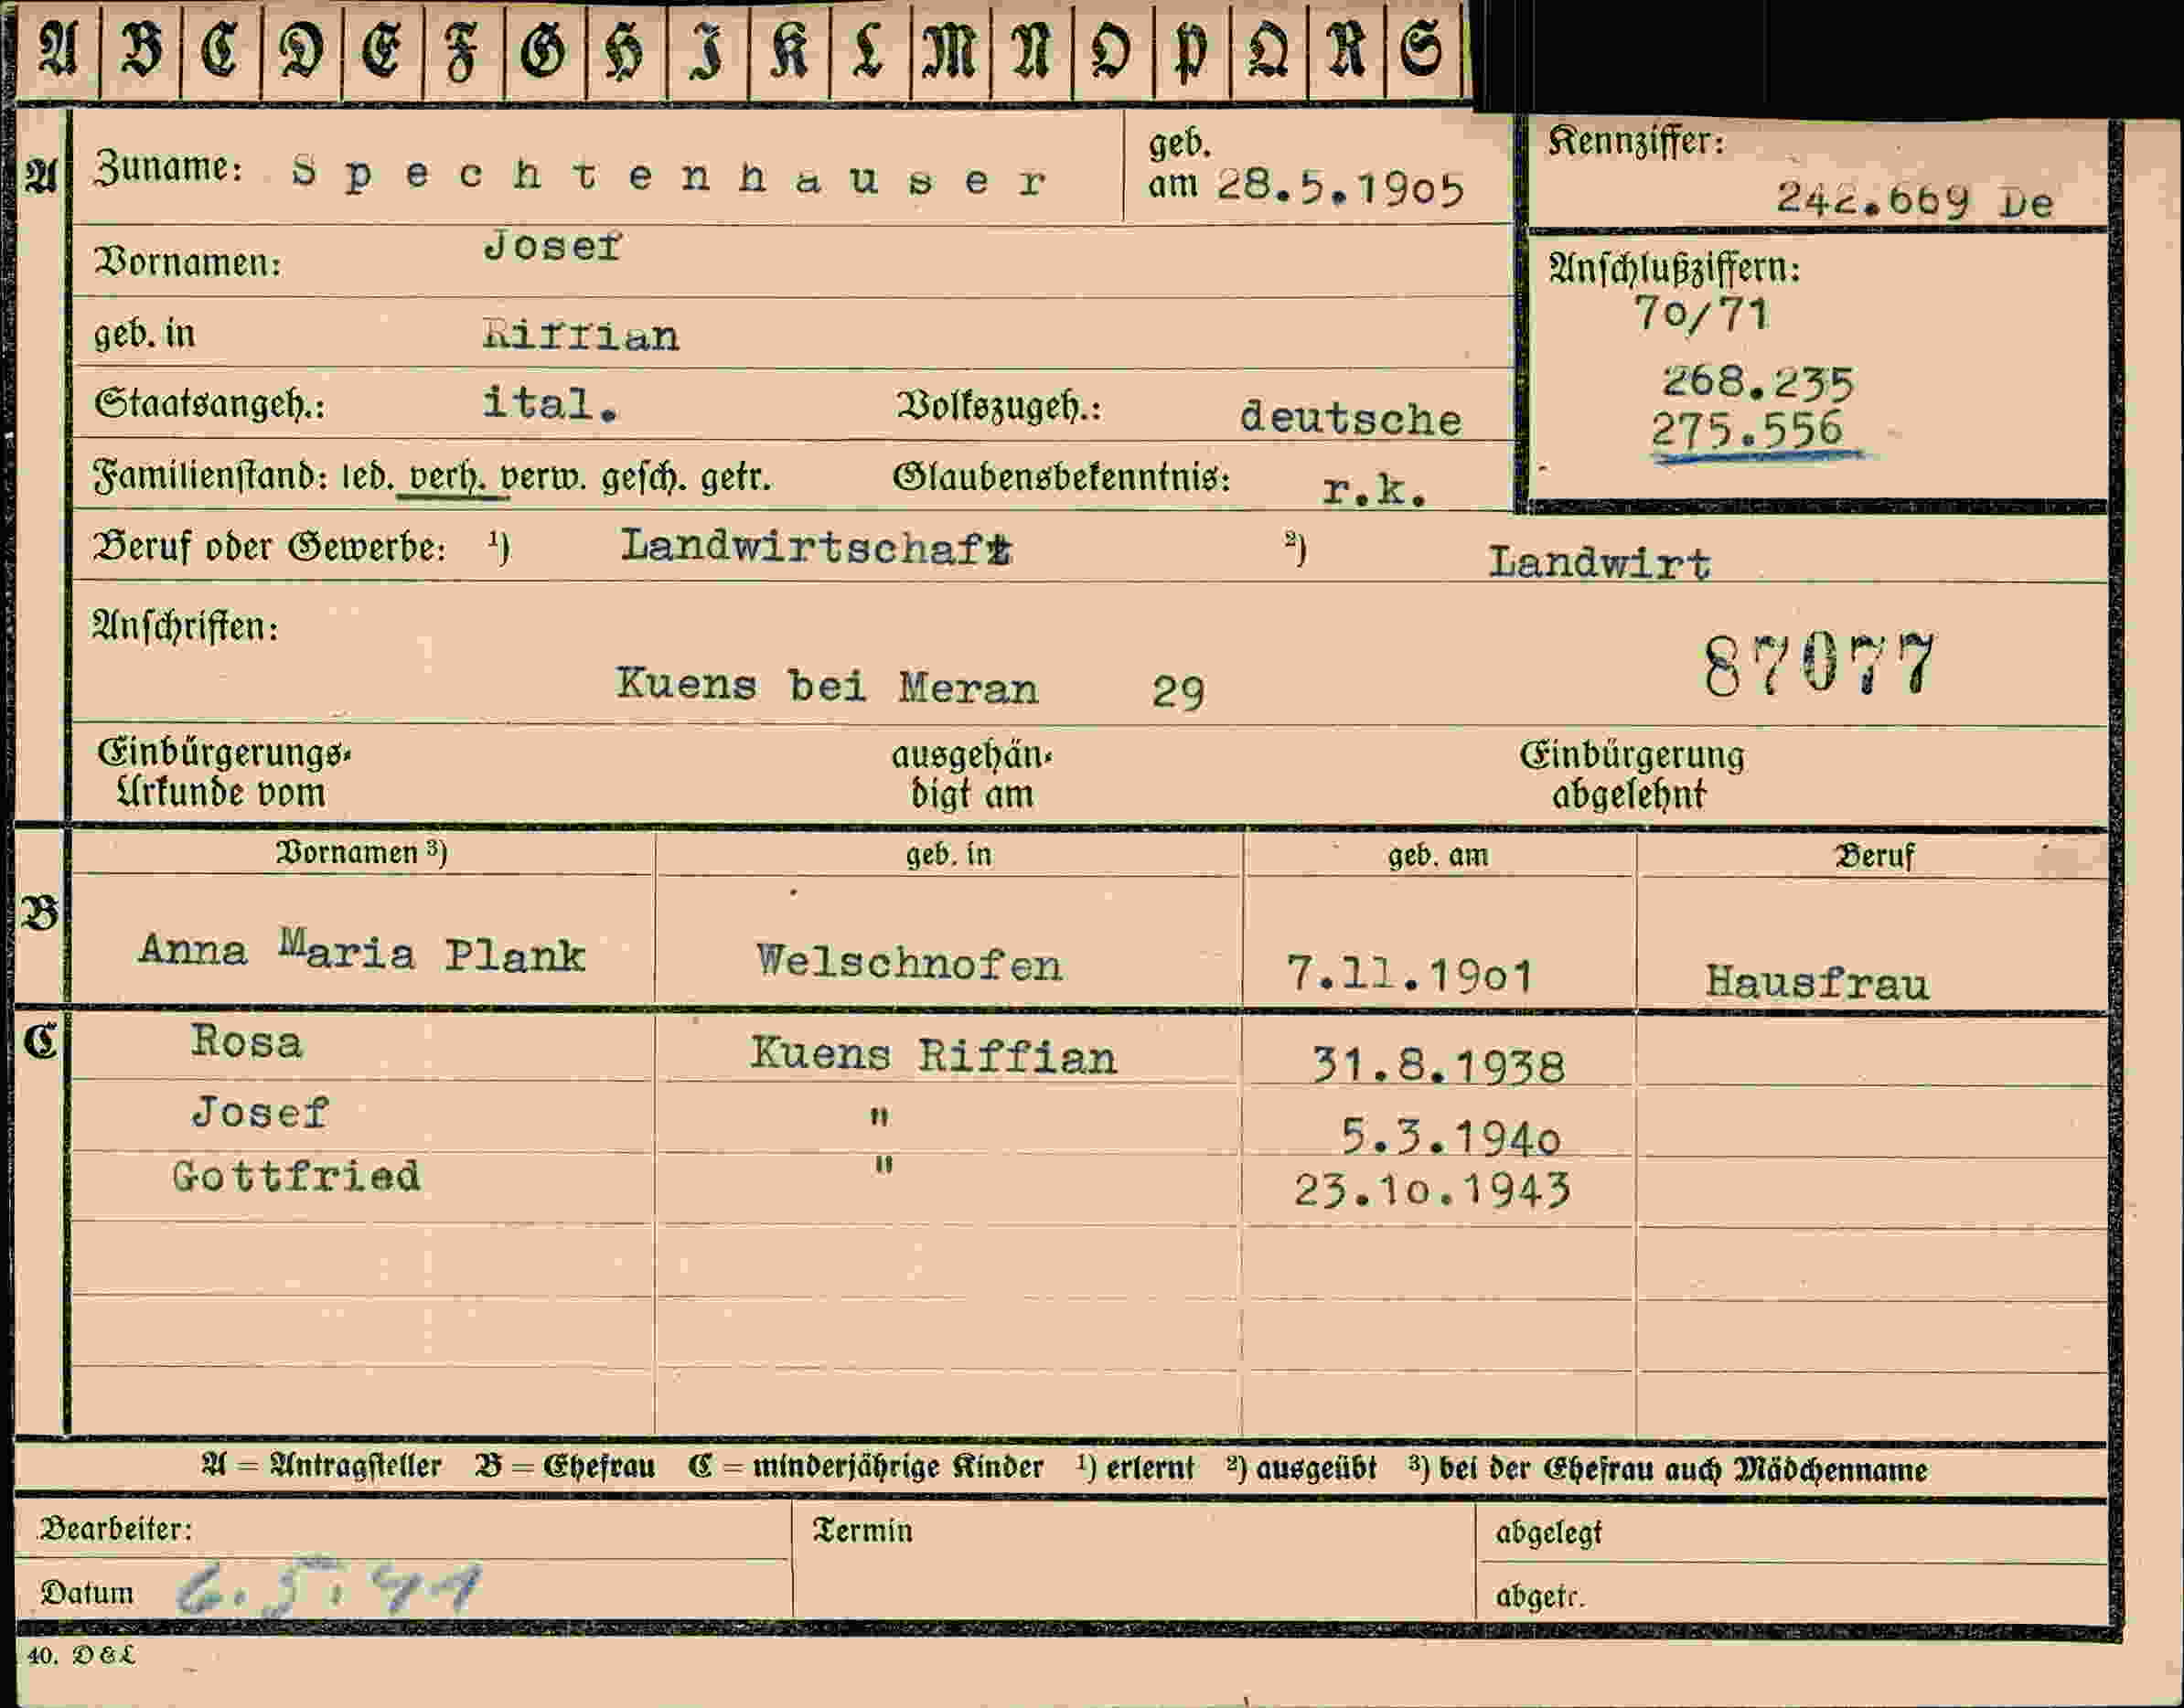 A B C D E F G H I K L M N O P Q R S
A Zuname: Spechtenhauser geb. am 28.5.1905 Kennziffer: 242.669 De
Vornamen: Josef
Anschlußziffern:
70/71
geb. in Riffian
268.235
Staatsangeh.: ital. Volkszugeh.: deutsche
275.556
Familienstand: led. verh. verw. gesch. getr. Glaubensbekenntnis: r.k.
Beruf oder Gewerbe: 1) Landwirtschaft 2) Landwirt
Anschriften:
Kuens bei Meran 29 87077
Einbürgerungs-Urkunde vom ausgehän-digt am Einbürgerung abgelehnt
Vornamen 3) geb. in geb. am Beruf
B Anna Maria Plank Welschnofen 7.11.1901 Hausfrau
C Rosa Kuens Riffian 31.8.1938
Josef " 5.3.1940
Gottfried " 23.10.1943
A = Antragsteller B = Ehefrau C = minderjährige Kinder 1) erlernt 2) ausgeübt 3) bei der Ehefrau auch Mädchenname
Bearbeiter: Termin abgelegt
Datum 6.5. abgetr.
40. D & L